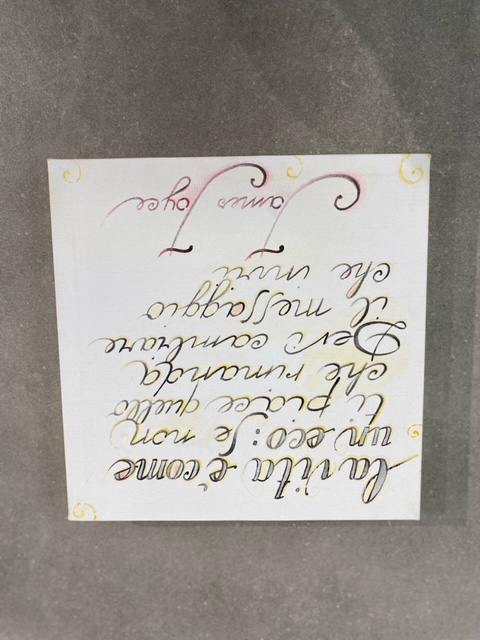 la vita è come
un eco: se non
ti piace quello
che rimanda
Devi cambiare
il messaggio
che invii
James Joyce